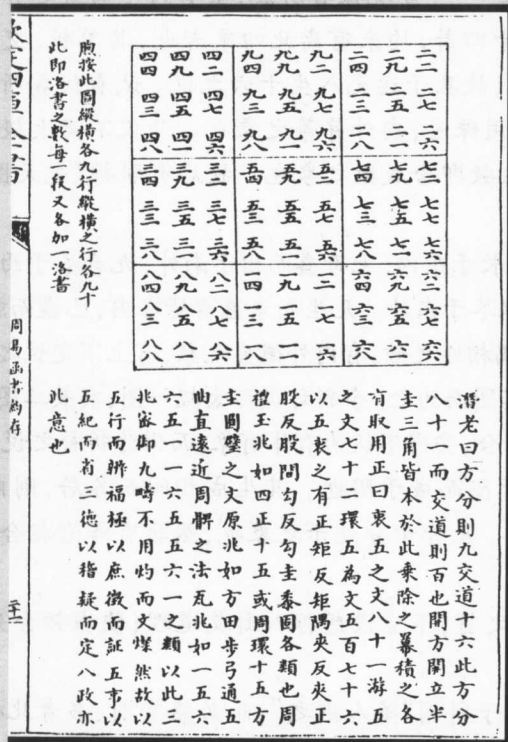 二二 二七 二六 七二 七七 七六 六二 六七 六六
二九 二五 二一 七九 七五 七一 六九 六五 六一
二四 二三 二八 七四 七三 七八 六四 六三 六八
九二 九七 九六 五二 五七 五六 一二 一七 一六
九九 九五 九一 五九 五五 五一 一九 一五 一一
九四 九三 九八 五四 五三 五八 一四 一三 一八
四二 四七 四六 三二 三七 三六 八二 八七 八六
四九 四五 四一 三九 三五 三一 八九 八五 八一
四四 四三 四八 三四 三三 三八 八四 八三 八八
煦按此圖縱橫各九行縱橫之行各九十
此即洛書之數每一段又各加一洛書
潛老曰方分則九交道十六此方分
八十一而交道則百也開方開立半
圭三角皆本於此乗除之冪積之各
有取用正曰衷五之文八十一游五
之文七十二環五為文五百七十六
以五衷之有正矩反矩隅夾反夾正
股反股問勾反勾圭黍圓各類也周
禮玉兆如四正十五或周環十五方
圭圓璧之文原兆如方田步弓通五
曲直遠近周髀之法瓦兆如一五六
六五一一六五五六一之類以此三
兆審御九疇不用灼而文燦然故以
五行而辨福極以庶徵而証五事以
五紀而省三德以稽疑而定八政亦
此意也
欽定四庫全書
周易函書約存